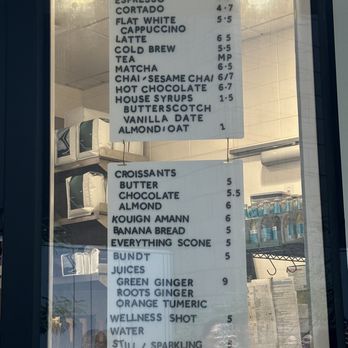 ESPRESSO
CORTADO 4·7
FLAT WHITE 5·5
CAPPUCCINO
LATTE 6 5
COLD BREW 5·5
TEA MP
MATCHA 6·5
CHAI/SESAME CHAI 6/7
HOT CHOCOLATE 6·7
HOUSE SYRUPS 1·5
BUTTERSCOTCH
VANILLA DATE
ALMOND/OAT 1
CROISSANTS
BUTTER 5
CHOCOLATE 5.5
ALMOND 6
KOUIGN AMANN 6
BANANA BREAD 5
EVERYTHING SCONE 5
BUNDT 5
JUICES
GREEN GINGER 9
ROOTS GINGER
ORANGE TUMERIC
WELLNESS SHOT 5
WATER
STILL/SPARKLING 5